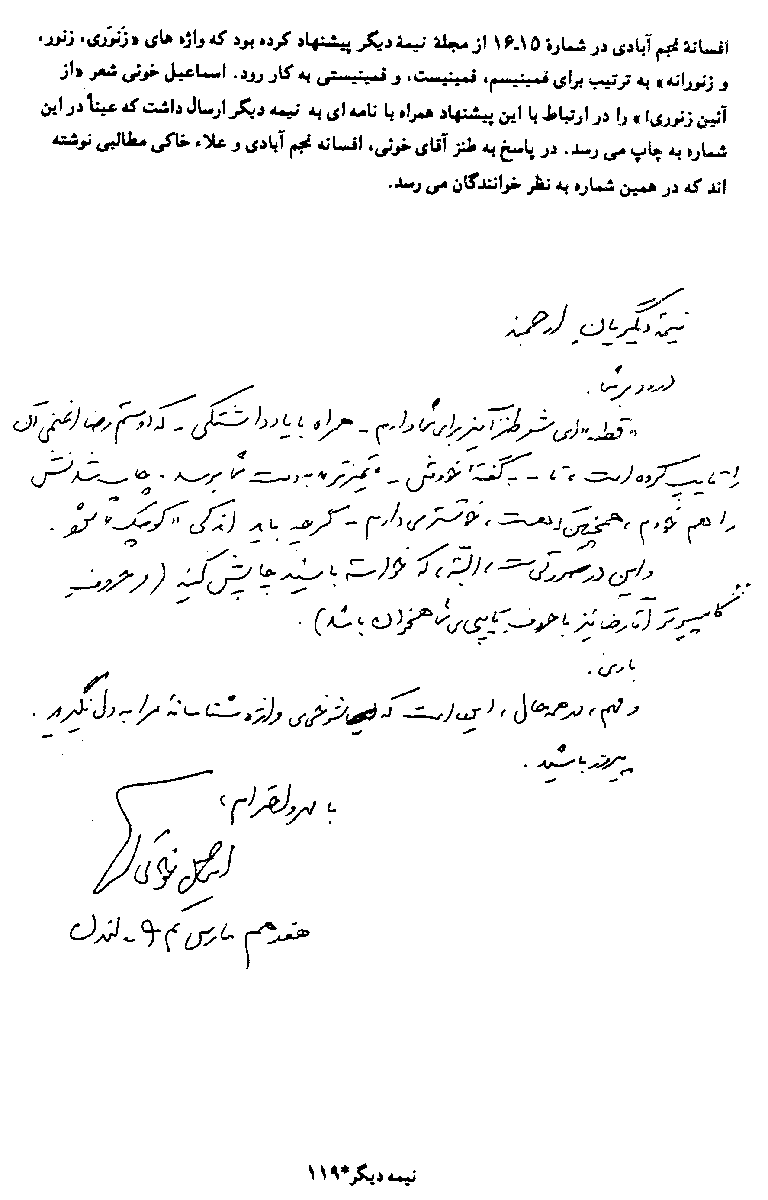 افسانهٔ نجم آبادی در شمارهٔ ۱۵ـ۱۶ از مجلهٔ نیمهٔ دیگر پیشنهاد کرده بود که واژه های «زَنوَری، زنور،
و زنورانه» به ترتیب برای فمینیسم، فمینیست، و فمینیستی به کار رود. اسماعیل خوئی شعر «از
آئین زنوری!» را در ارتباط با این پیشنهاد همراه با نامه ای به نیمه دیگر ارسال داشت که عیناً در این
شماره به چاپ می رسد. در پاسخ به طنز آقای خوئی، افسانه نجم آبادی و علاء خاکی مطالبی نوشته
اند که در همین شماره به نظر خوانندگان می رسد.
نیمهٔ دیگریان ارجمند
درود بر شما.
«قطعه» ای شعر طنزآمیز برای شما دارم - همراه با یادداشتکی - که دوستم رضا آن
را تایپ کرده است، تا - به گفتهٔ خودش - «تمیزتر» به دست شما برسد. چاپ شدنش
را هم خودم، همچنین که هست، خوشتر می دارم - گرچه باید اندکی «کوچک» شود.
و این در صورتی ست، البته، که خواسته باشید چاپش کنید (و حروف
کامپیوتر آقا رضا نیز با حروف تایپی ی شما همخوان باشد).
باری.
و مهم، در همه حال، این است که شوخی ی واژه شناسانهٔ مرا به دل نگیرید.
پیروز باشید.
با مهر و احترام،
اسماعیل خوئی
هفدهم مارس ۹ - لندن
نیمه دیگر*۱۱۹